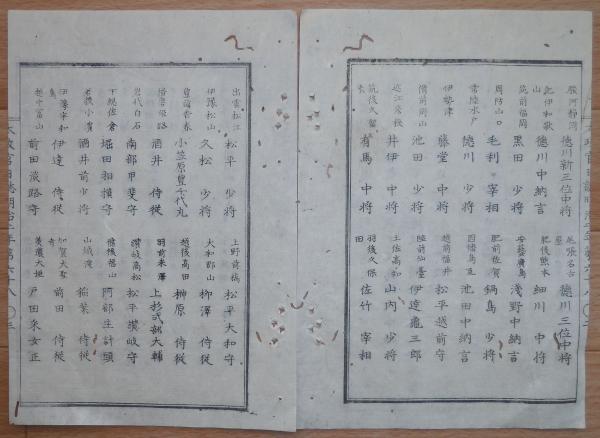 駿河静岡 德川新三位中将 尾張名古屋 德川三位中将
紀伊和歌山 德川中納言 肥後熊本 細川中将
筑前福岡 黒田少将 安藝廣島 淺野中納言
周防山口 毛利宰相 肥前佐賀 鍋島少将
常陸水戸 德川少将 因幡鳥取 池田中納言
伊勢津 藤堂中将 越前福井 松平越前守
備前岡山 池田少将 陸前仙臺 伊達龜三郎
近江彦根 井伊中将 土佐高知 山内少将
筑後久留米 有馬中将 羽後久保田 佐竹宰相
出雲松江 松平少将 上野前橋 松平大和守
伊豫松山 久松少将 大和郡山 柳澤侍従
豊前香春 小笠原豊千代丸 越後高田 榊原侍従
播磨姫路 酒井侍従 羽前米澤 上杉式部大輔
岩代白石 南部甲斐守 讃岐高松 松平讃岐守
下総佐倉 堀田相模守 備後福山 阿部主計頭
若狭小濱 酒井前少将 山城淀 稲葉侍従
伊豫宇和島 伊達侍従 加賀大聖寺 前田侍従
越中富山 前田淡路守 美濃大垣 戸田采女正
太政官日誌明治二年第六十八 〇三